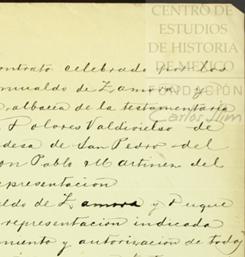 CENTRO DE
ESTUDIOS
DE HISTORIA
DE MEXICO
FUNDACIÓN
Carlos Slim
contrato celebrado por los
omualdo de Zamora y
albacea de la testamentaria
Dolores Valdivielso de
desa de San Pedro del
on Pablo Martinez del
epresentacion
aldo de Zamora y Duque
representacion indicada
miento y autorizacion de todo